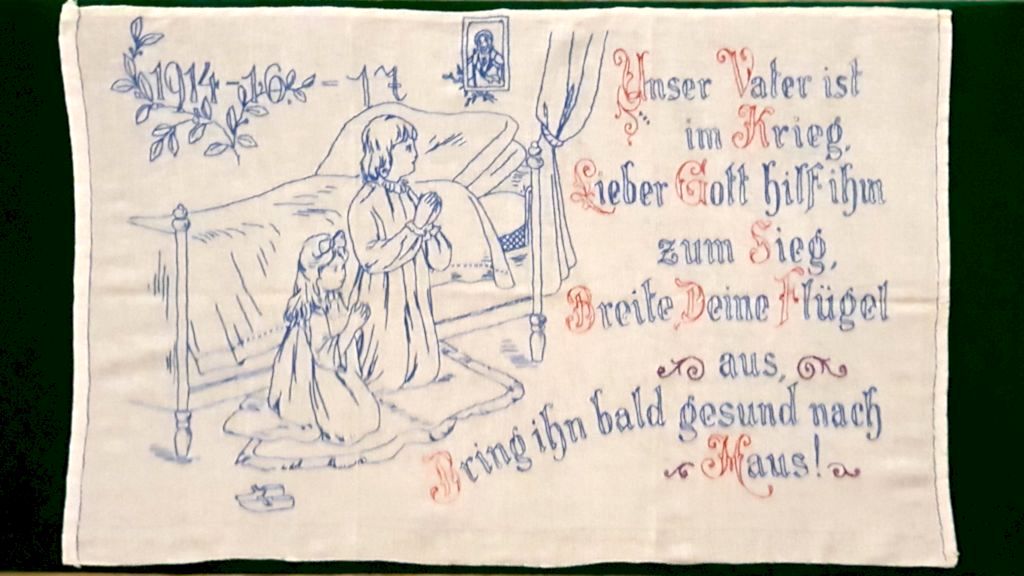 1914-16.-17
Unser Vater ist
im Krieg,
Lieber Gott hilf ihm
zum Sieg,
Breite Deine Flügel
aus,
Bring ihn bald gesund nach
Haus!